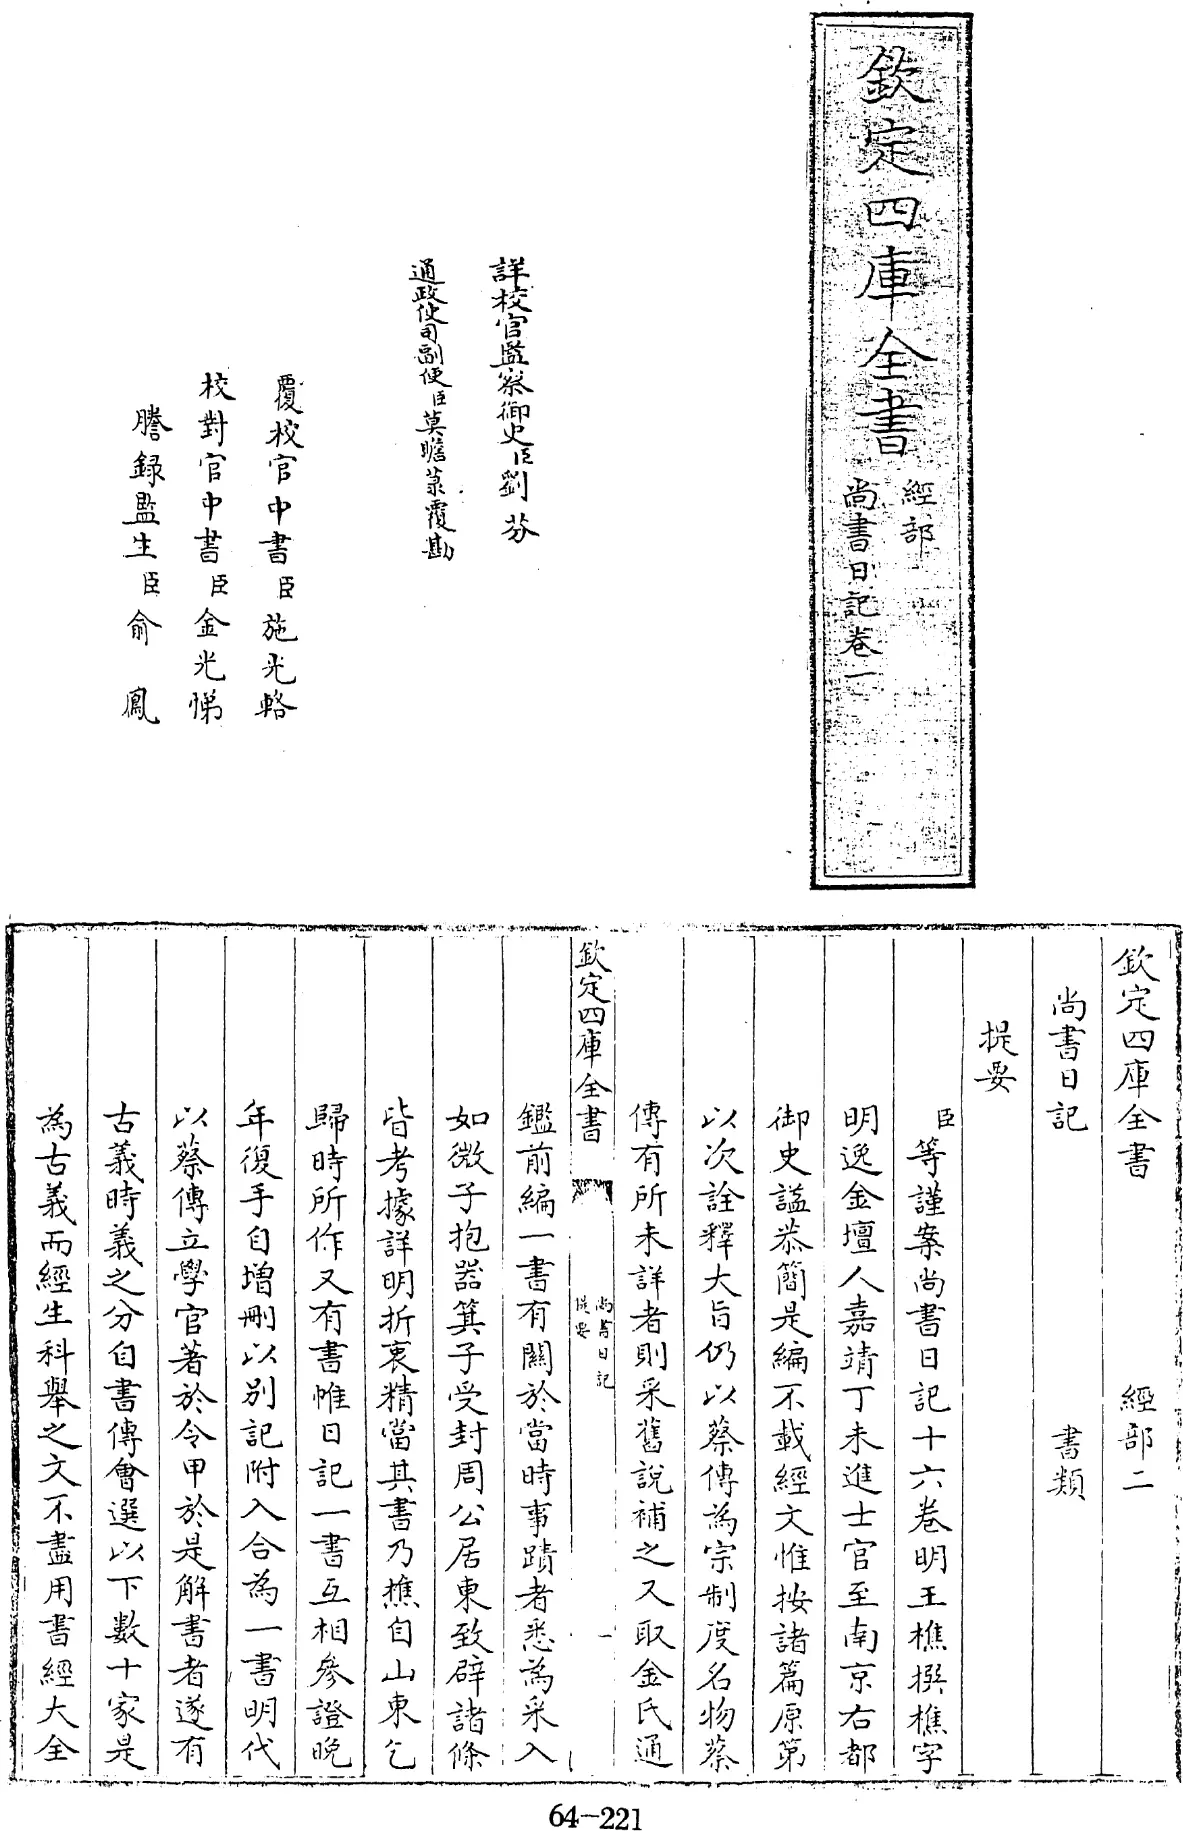 欽定四庫全書
經部
尚書日記卷一
詳校官監察御史臣劉芬
通政使司副使臣莫瞻菉覆勘
覆校官中書臣施光輅
校對官中書臣金光悌
謄録監生臣俞鳳
欽定四庫全書 經部二
尚書日記 書類
提要
臣等謹案尚書日記十六卷明王樵撰樵字
明逸金壇人嘉靖丁未進士官至南京右都
御史諡恭簡是編不載經文惟按諸篇原第
以次詮釋大旨仍以蔡傳為宗制度名物蔡
傳有所未詳者則采舊說補之又取金氏通
欽定四庫全書
尚書日記
提要
一
鑑前編一書有關於當時事蹟者悉為采入
如微子抱器箕子受封周公居東致辟諸條
皆考據詳明折衷精當其書乃樵自山東乞
歸時所作又有書帷日記一書互相參證晚
年復手自增刪以別記附入合為一書明代
以蔡傳立學官著於令甲於是解書者遂有
古義時義之分自書傳會選以下數十家是
為古義而經生科舉之文不盡用書經大全
64-221